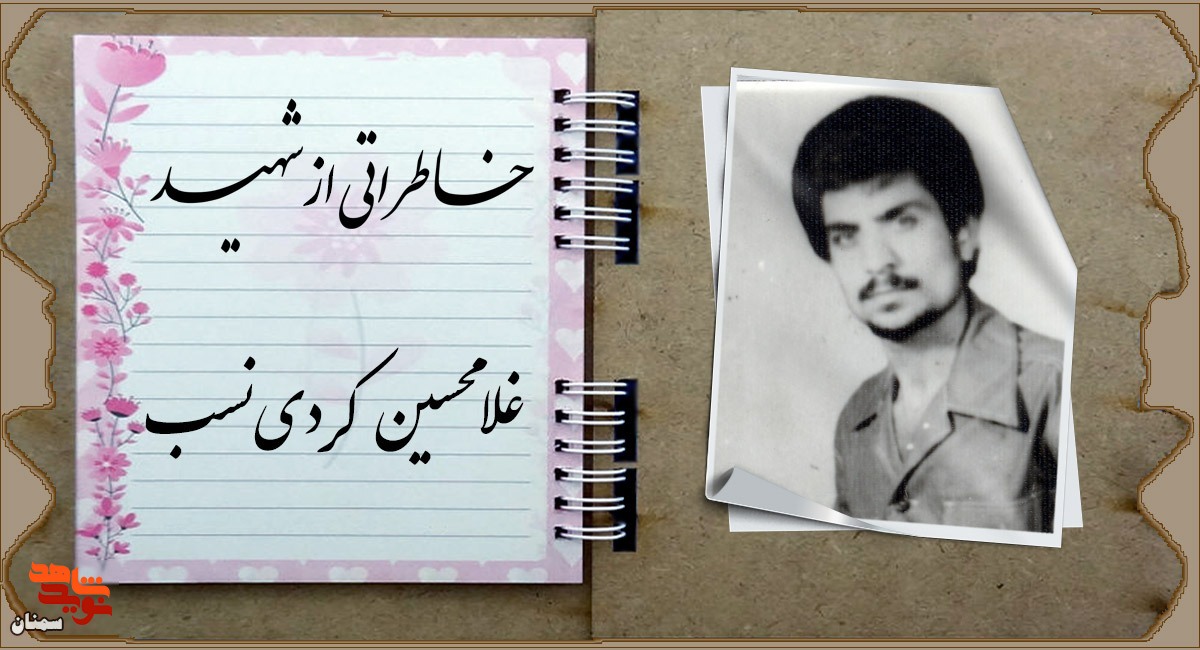 خاطراتی از شهید
غلامحسین کردی نسب
نوید شاهد
سمنان